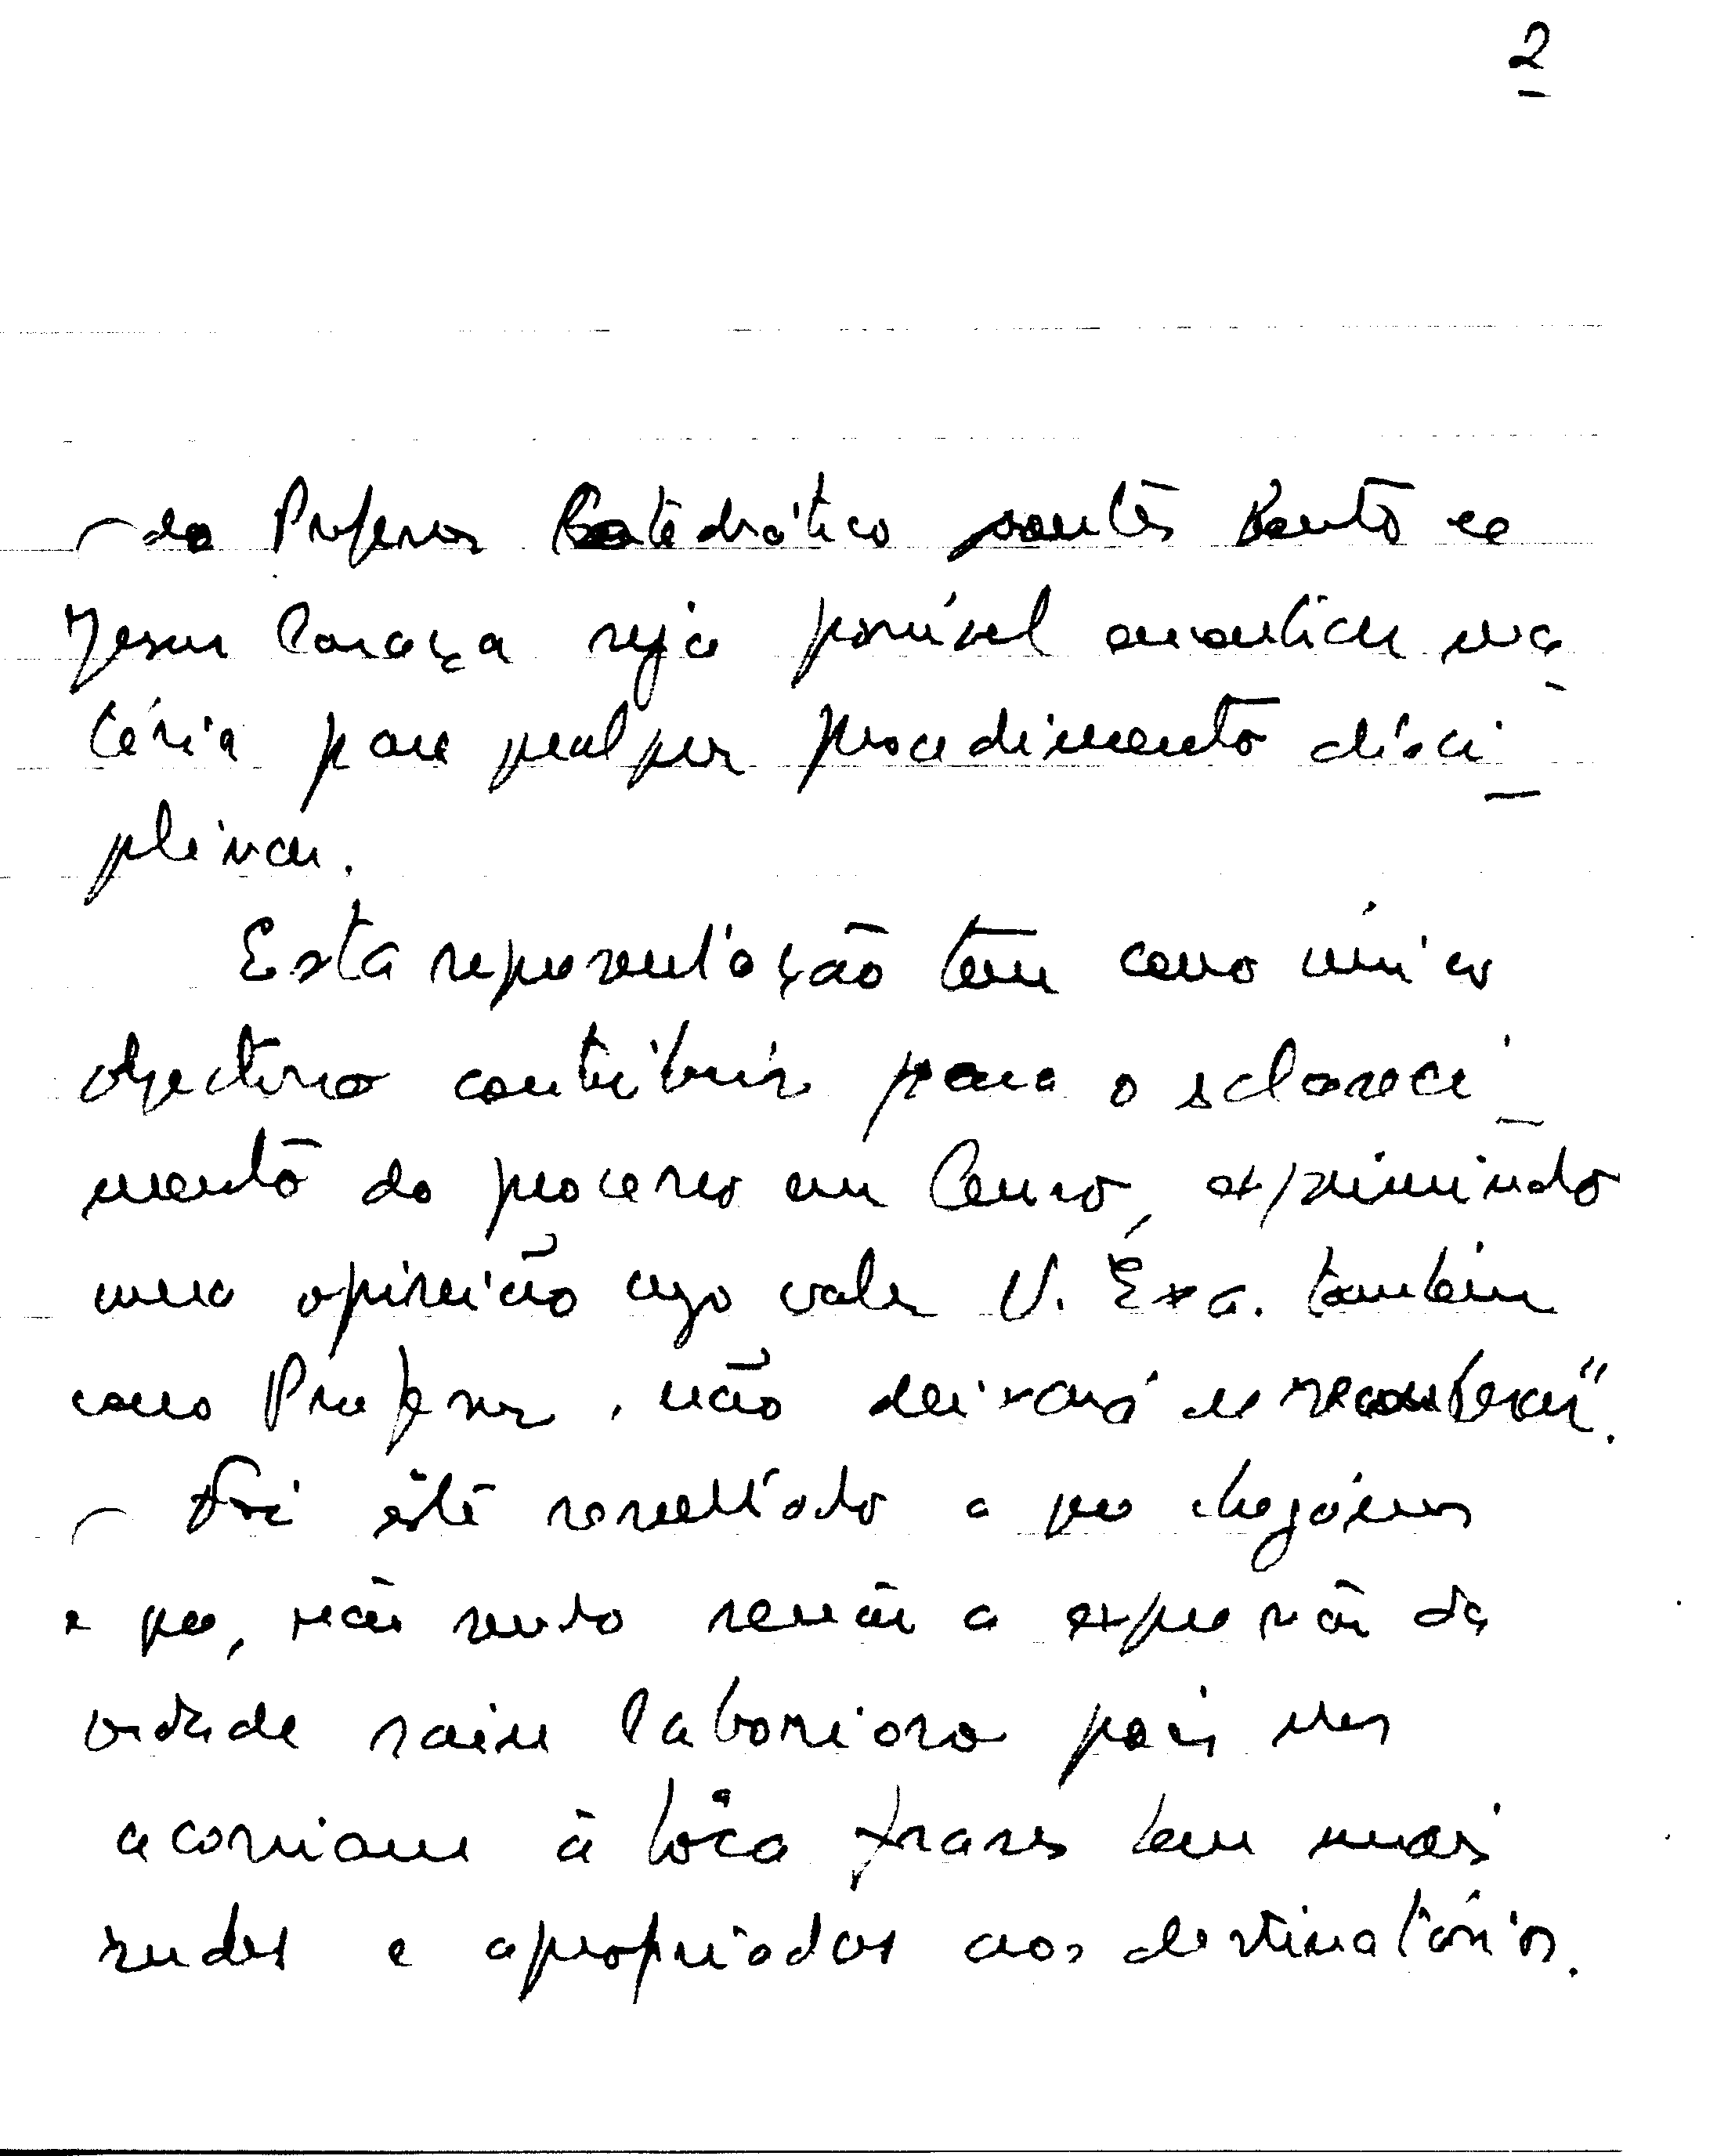 2
do Professor Catedrático doutor Bento de
Jesus Caraça seja possível encontrar ma_
téria para qualquer procedimento disci_
plinar.
Esta representação tem como único
objectivo contribuir para o esclareci_
mento do processo em curso, exprimindo
uma opinião cujo valor V. Exa. também
como Professor, não deixará de reconhecer".
– Foi êste resultado a que chegámos
e que, não sendo senão a expressão da
verdade saiu laboriosa pois nos
acorriam à bôca frases bem mais
rudes e apropriadas aos destinatários.